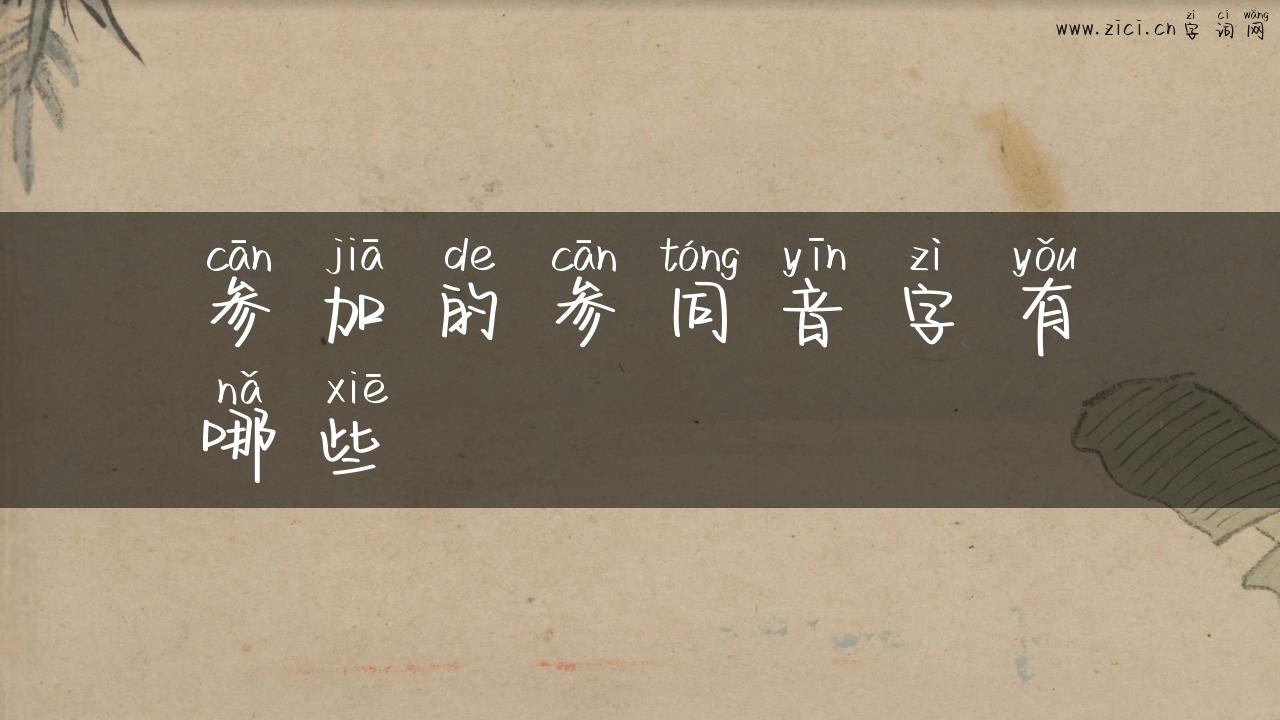 zì cí wǎng
www.zici.cn 字词网
cān jiā de cān tóng yīn zì yǒu
参加的参同音字有
nǎ xiē
哪些